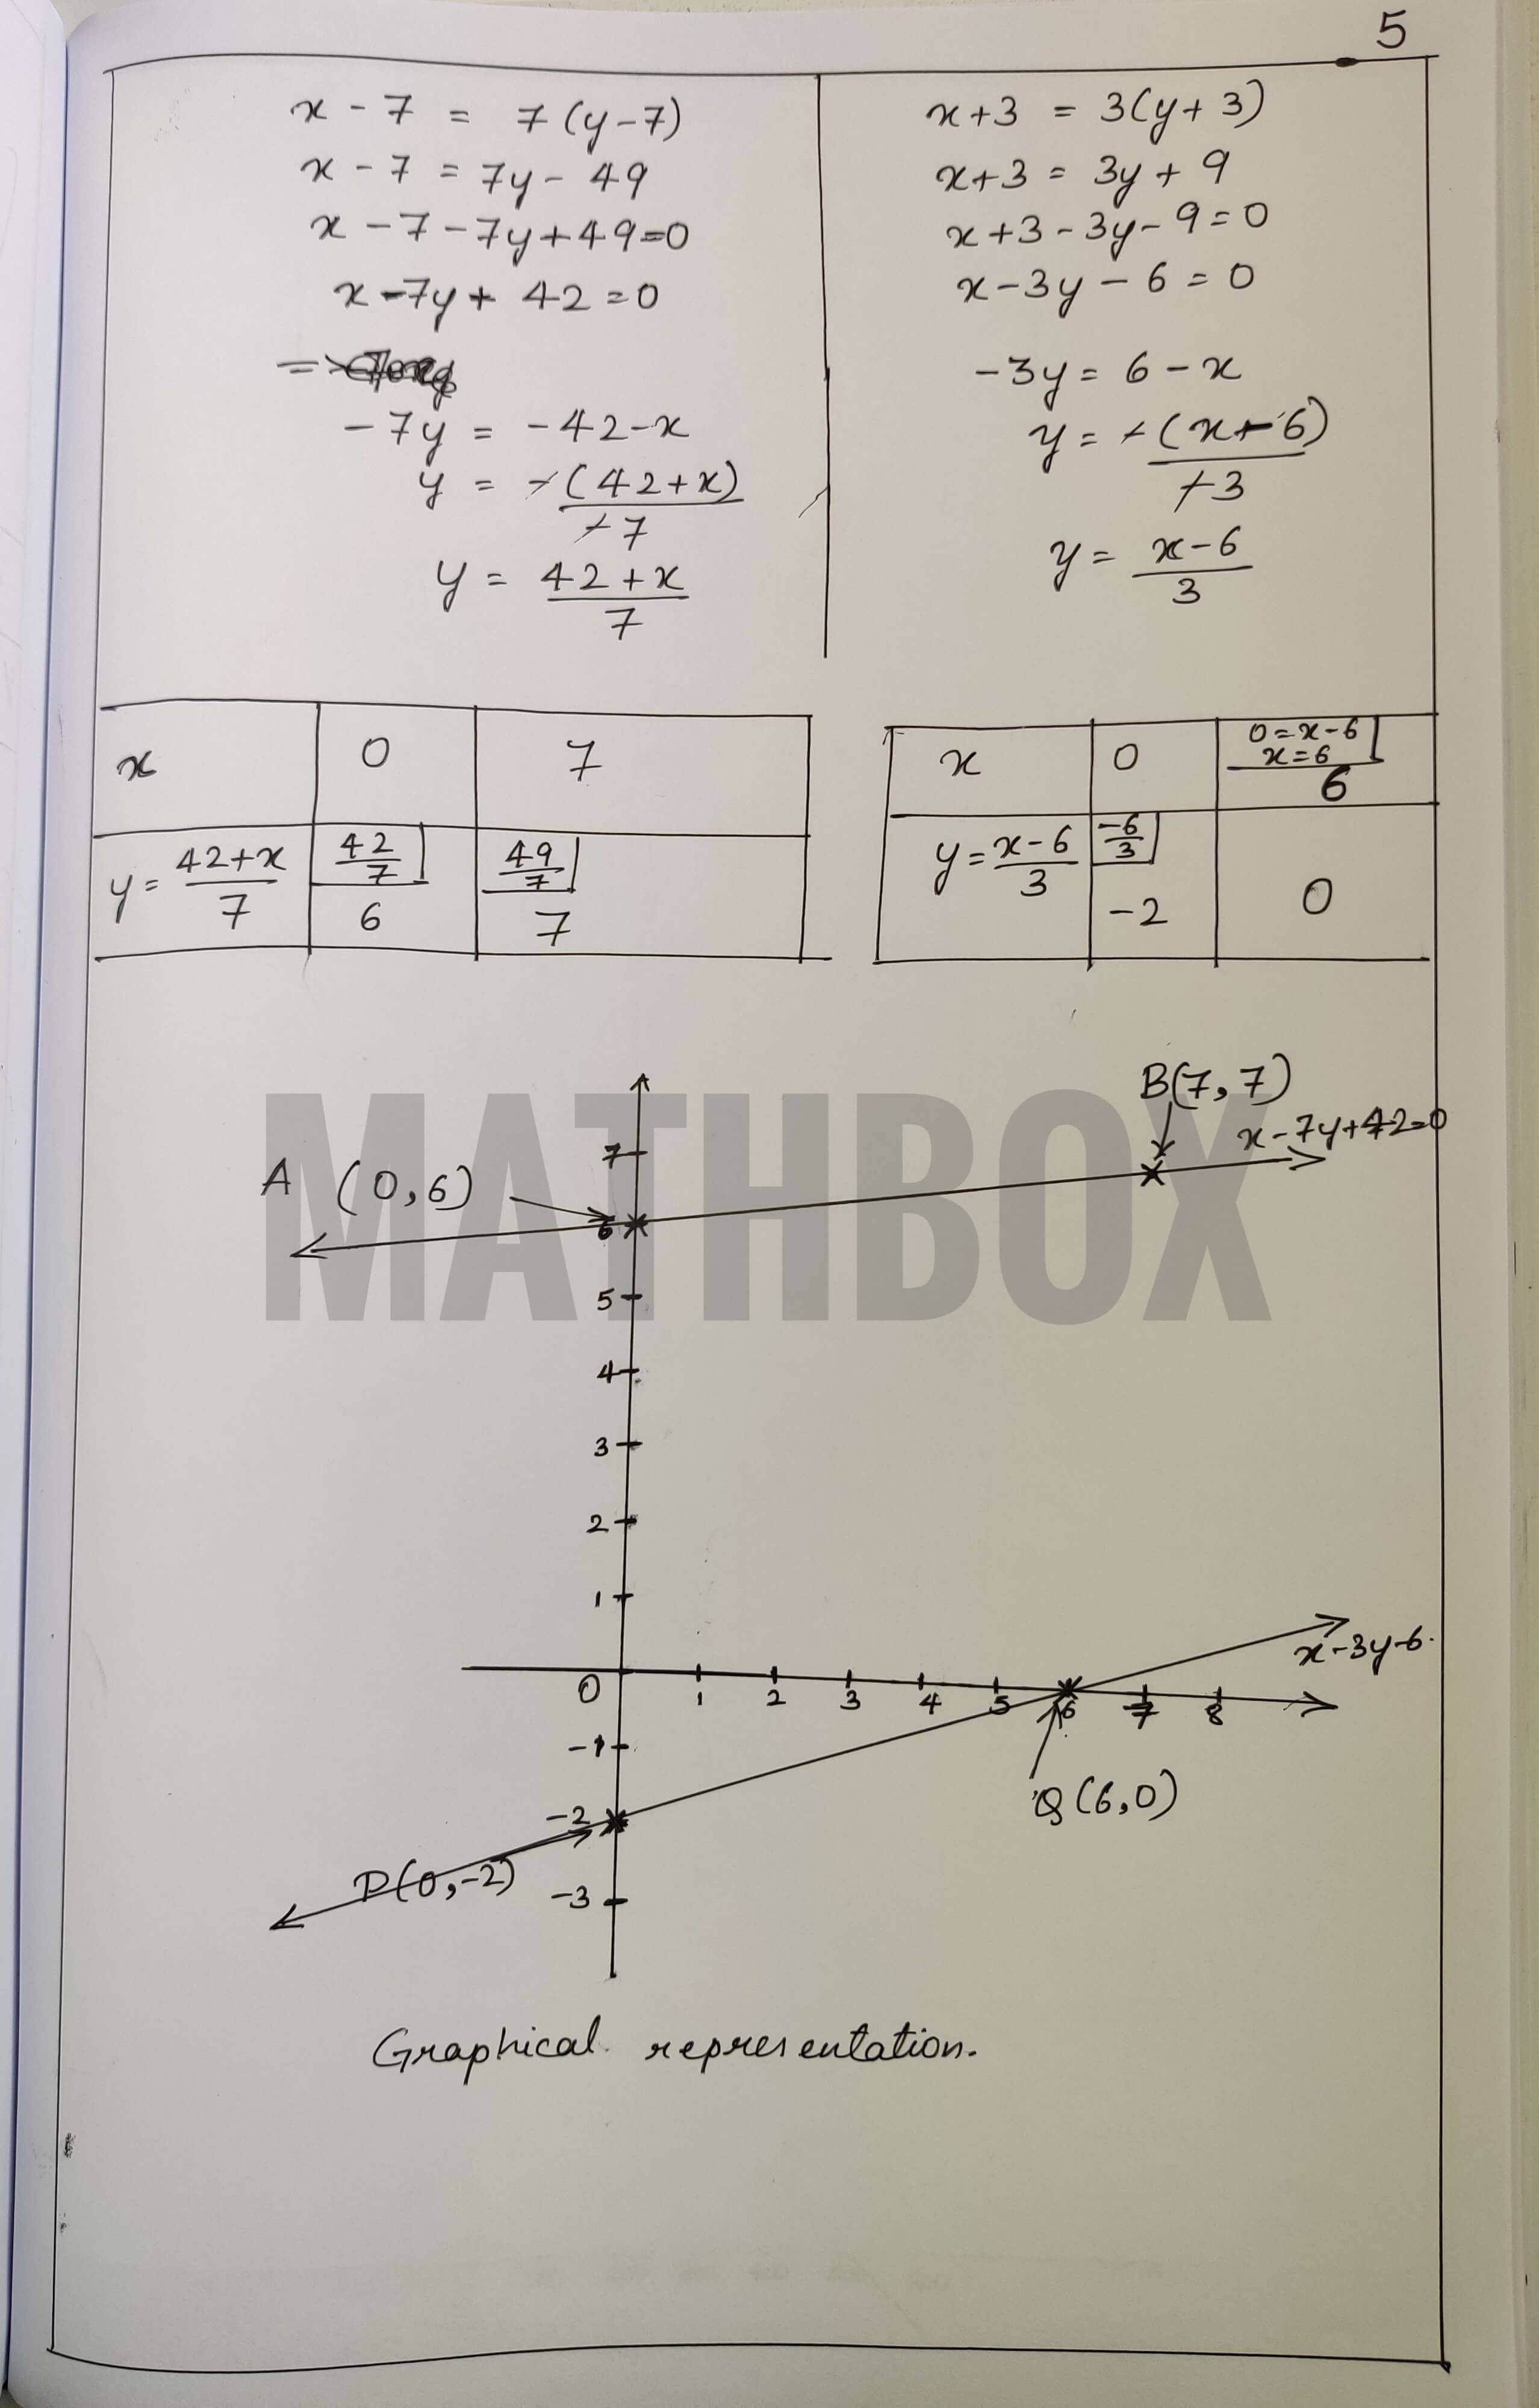 5
x - 7 = 7(y-7)
x - 7 = 7y - 49
x - 7 - 7y + 49 = 0
x - 7y + 42 = 0
-7y = -42 - x
y = -(42+x)
-7
y = 42 + x
7
x+3 = 3(y+3)
x+3 = 3y + 9
x+3 - 3y - 9 = 0
x - 3y - 6 = 0
-3y = 6 - x
y = -(x-6)
-3
y = x - 6
3
x 0 7
y = 42+x
7
42
7
6
49
7
7
x 0
0 = x-6
x = 6
6
y = x - 6
3
-6
3
-2
0
MATHBOX
B(7, 7)
x - 7y + 42 = 0
A (0,6)
7
6
5
4
3
2
1
0
1 2 3 4 5 6 7 8
x - 3y - 6.
-1
-2
-3
Q(6,0)
P(0,-2)
Graphical representation.